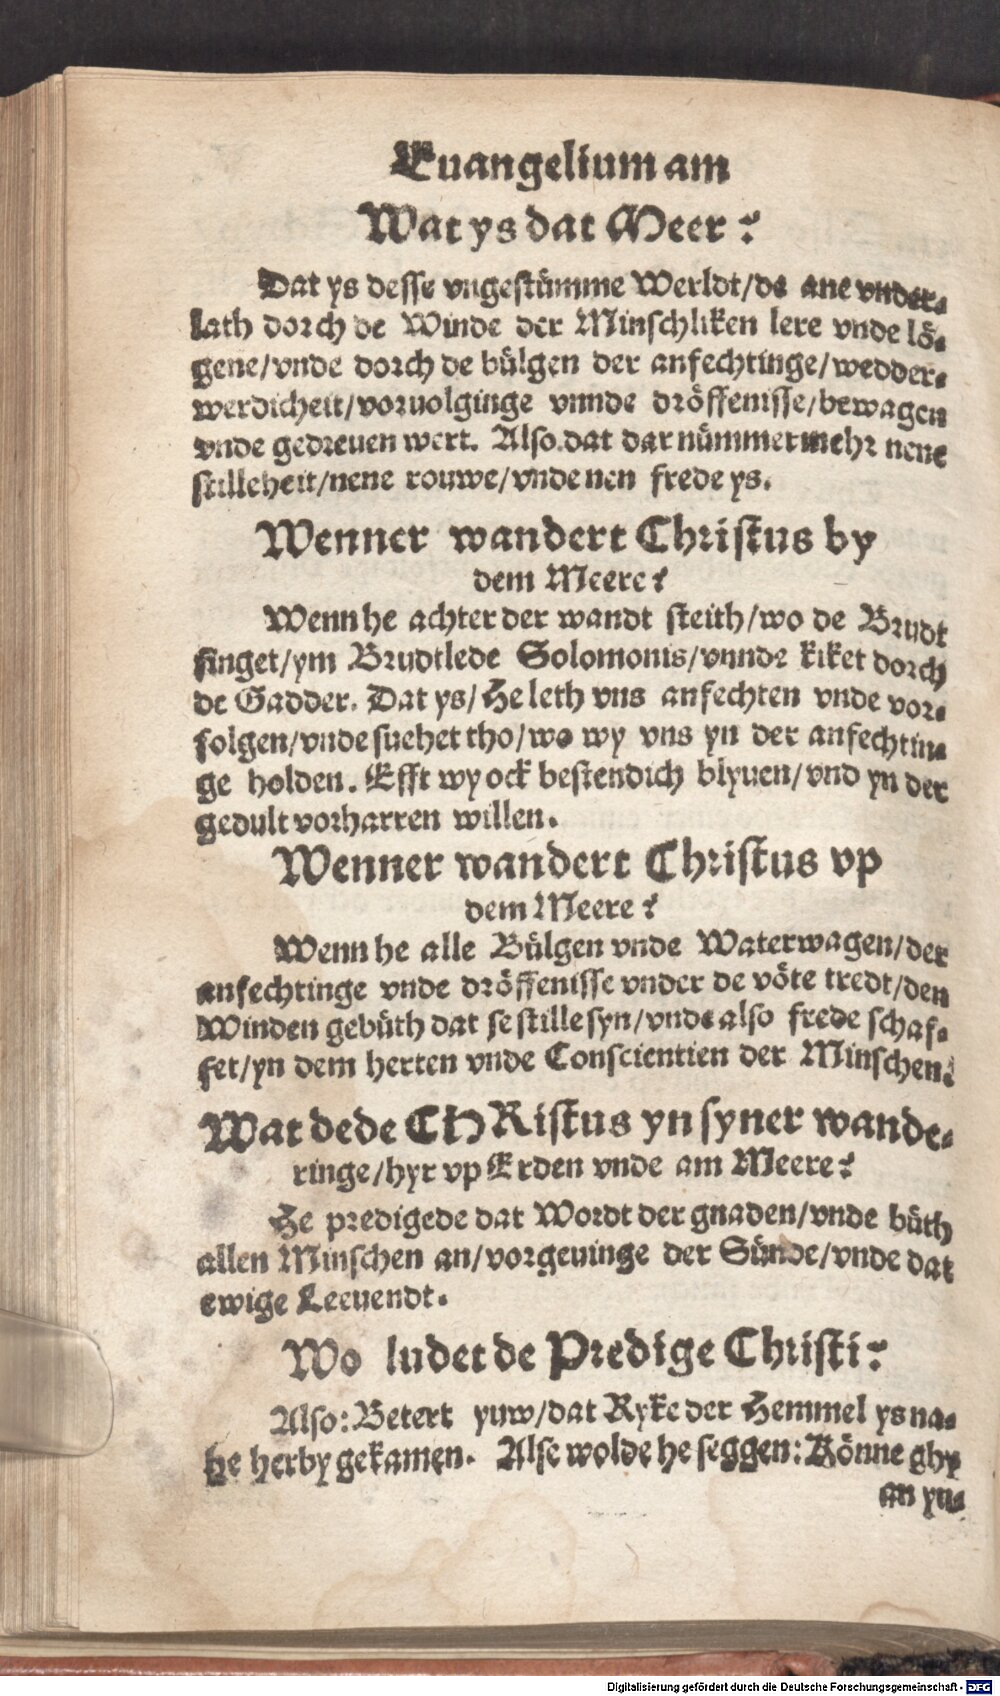 Euangelium am
Wat ys dat Meer?
Dat ys desse vngestümme Werldt/de ane vnder-
lath dorch de Winde der Minschliken lere vnde lö-
gene/vnde dorch de bülgen der anfechtinge/wedder-
werdicheit/voruolginge vnnde dröffenisse/bewagen
vnde gedreuen wert. Also dat dar nümmermehr nene
stilleheit/nene rouwe/vnde nen frede ys.
Wenner wandert Christus by
dem Meere?
Wenn he achter der wandt steith/wo de Brudt
singet/ym Brudtlede Solomonis/vnnde kiket dorch
de Gadder. Dat ys/He leth vns anfechten vnde vor-
folgen/vnde suehet tho/wo wy vns yn der anfechtin-
ge holden. Efft wy ock bestendich blyuen/vnd yn der
gedult vorharren willen.
Wenner wandert Christus vp
dem Meere?
Wenn he alle Bülgen vnde Waterwagen/der
anfechtinge vnde dröffenisse vnder de vöte tredt/den
Winden gebüth dat se stille syn/vnde also frede schaf-
fet/yn dem herten vnde Conscientien der Minschen.
Wat dede CHRistus yn syner wande-
ringe/hyr vp Erden vnde am Meere?
He predigede dat Wordt der gnaden/vnde büth
allen Minschen an/vorgeuinge der Sünde/vnde dat
ewige Leeuendt.
Wo ludet de Predige Christi?
Also: Betert yuw/dat Ryke der Hemmel ys na-
he herby gekamen. Alse wolde he seggen: Könne ghy
an yu-
Digitalisierung gefördert durch die Deutsche Forschungsgemeinschaft - DFG